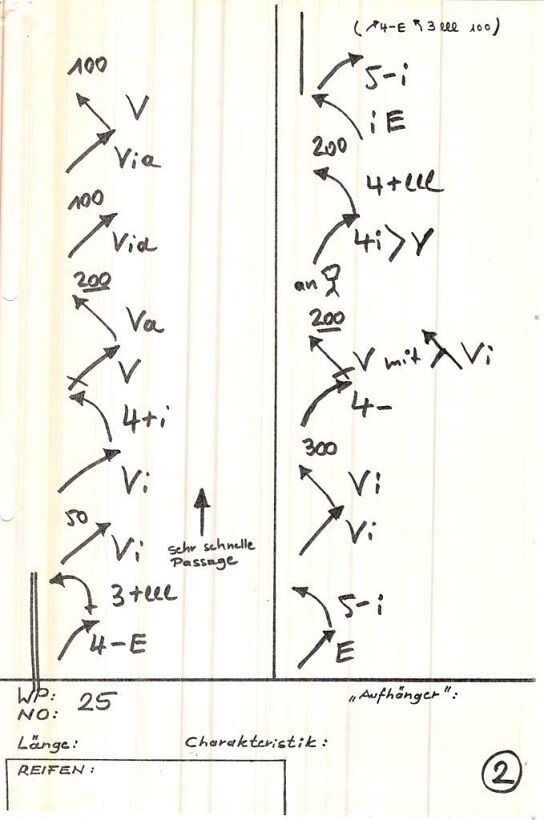 100
V
Via
100
Via
200
Va
V
4+i
Vi
50
Vi
sehr schnelle
Passage
3+lll
4-E
(4-E 3 lll 100)
5-i
iE
200
4+lll
4i>V
an
200
V mit Vi
4-
300
Vi
Vi
5-i
E
WP:
NO: 25
"Aufhänger":
Länge: Charakteristik:
REIFEN:
2